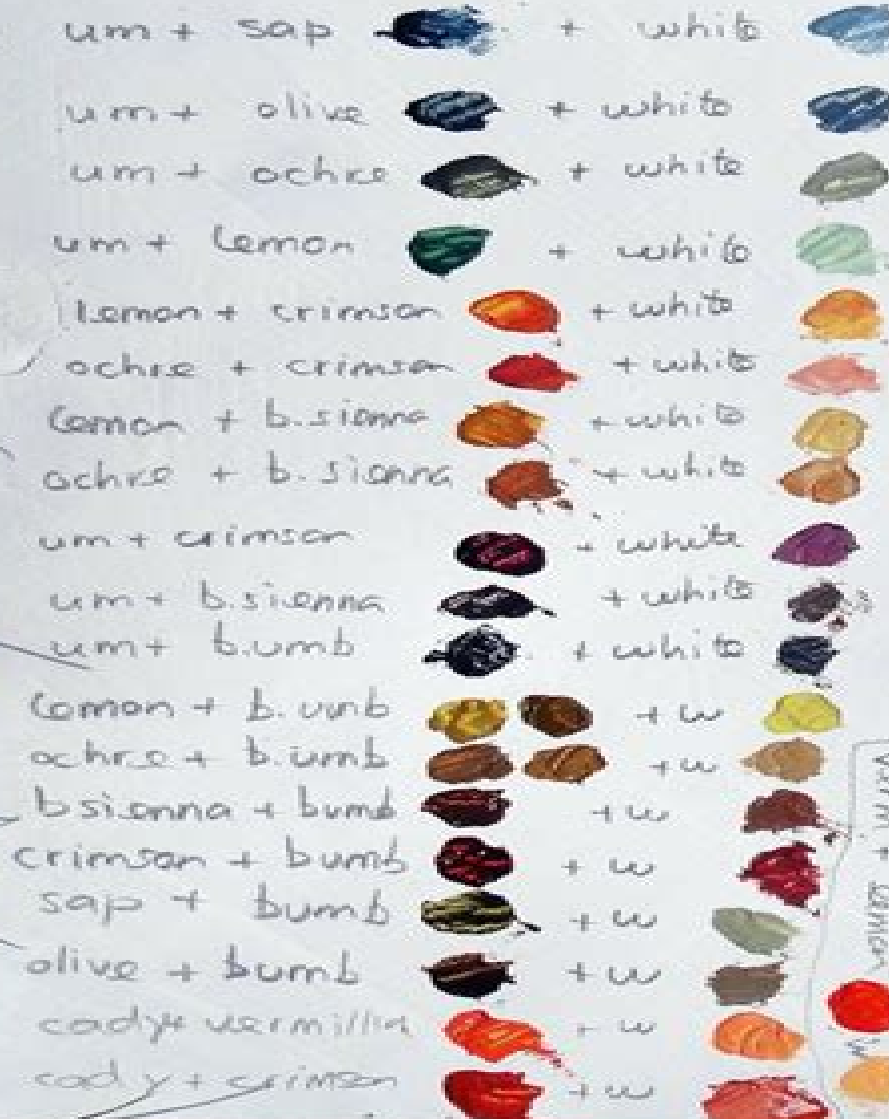 um + sap + white
um + olive + white
um + ochre + white
um + lemon + white
lemon + crimson + white
ochre + crimson + white
lemon + b.sienna + white
ochre + b.sienna + white
um + crimson + white
um + b.sienna + white
um + b.umb + white
lemon + b.umb + w
ochre + b.umb + w
b sienna + bumb + w
crimson + bumb + w
sap + bumb + w
olive + bumb + w
cady + vermillin + w
cad y + crimson + w
+ lemon